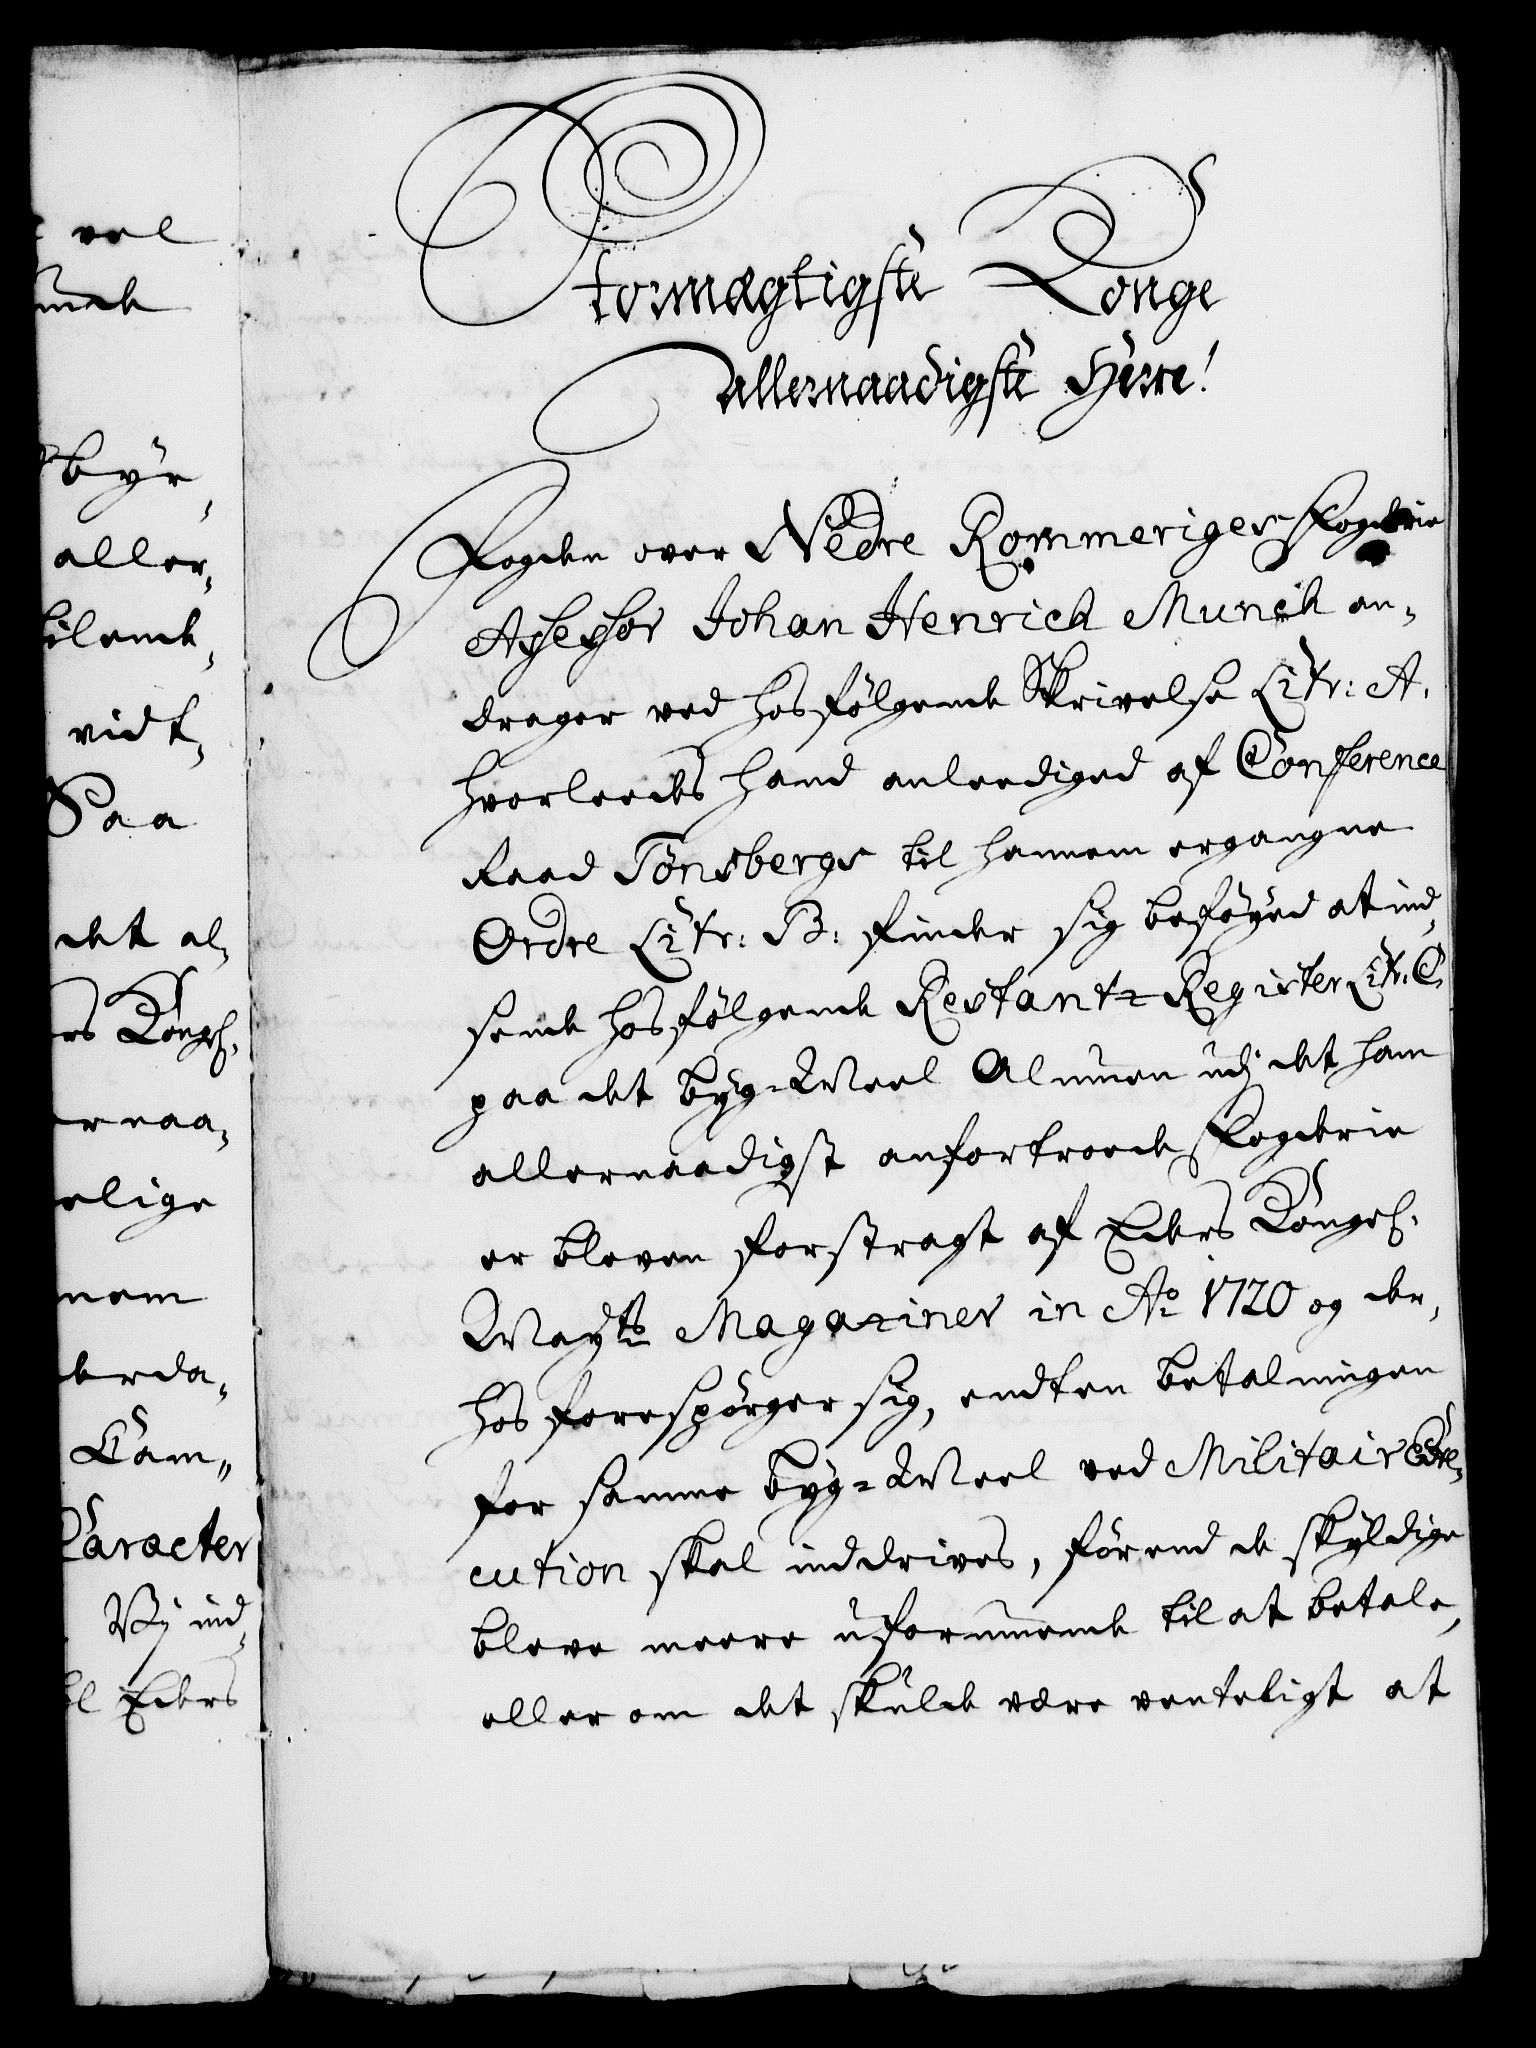 vel
mede
byr,
aller,
bilende,
vidt,
Saa
det al,
rs Kongel.
ernaa,
elige
nem
derda,
Cam,,
Caracter
Vij ind,
Eders
Stormægtigste Konge
allernaadigste Herre!
Fogden over Nedre Rommeriges Fogderie
Assessor Johan Henrich Munch an,
drager ved hosfölgende Skrivelse Litr: A.
hvorleedes hand anleediget af Conference
Raad Tönsbergs til hannem ergangne
Ordre Litr: B: finder sig beföyed at ind,
sende hosfölgende Restantz-Register Litr. C.
paa det byg-Meel Almuen udj det ham
allernaadigst anfortroede Fogderie
er bleven forstragt af Eders Kongel.
Mayts Magaziner in Ao 1720 og der,
hos forespörger sig, endten betalningen
for samme byg-Meel ved Militair Exe,
cution skal inddrives, förend de skyldige
bleve meere uformuende til at betale,
eller om det skulde være venteligt at